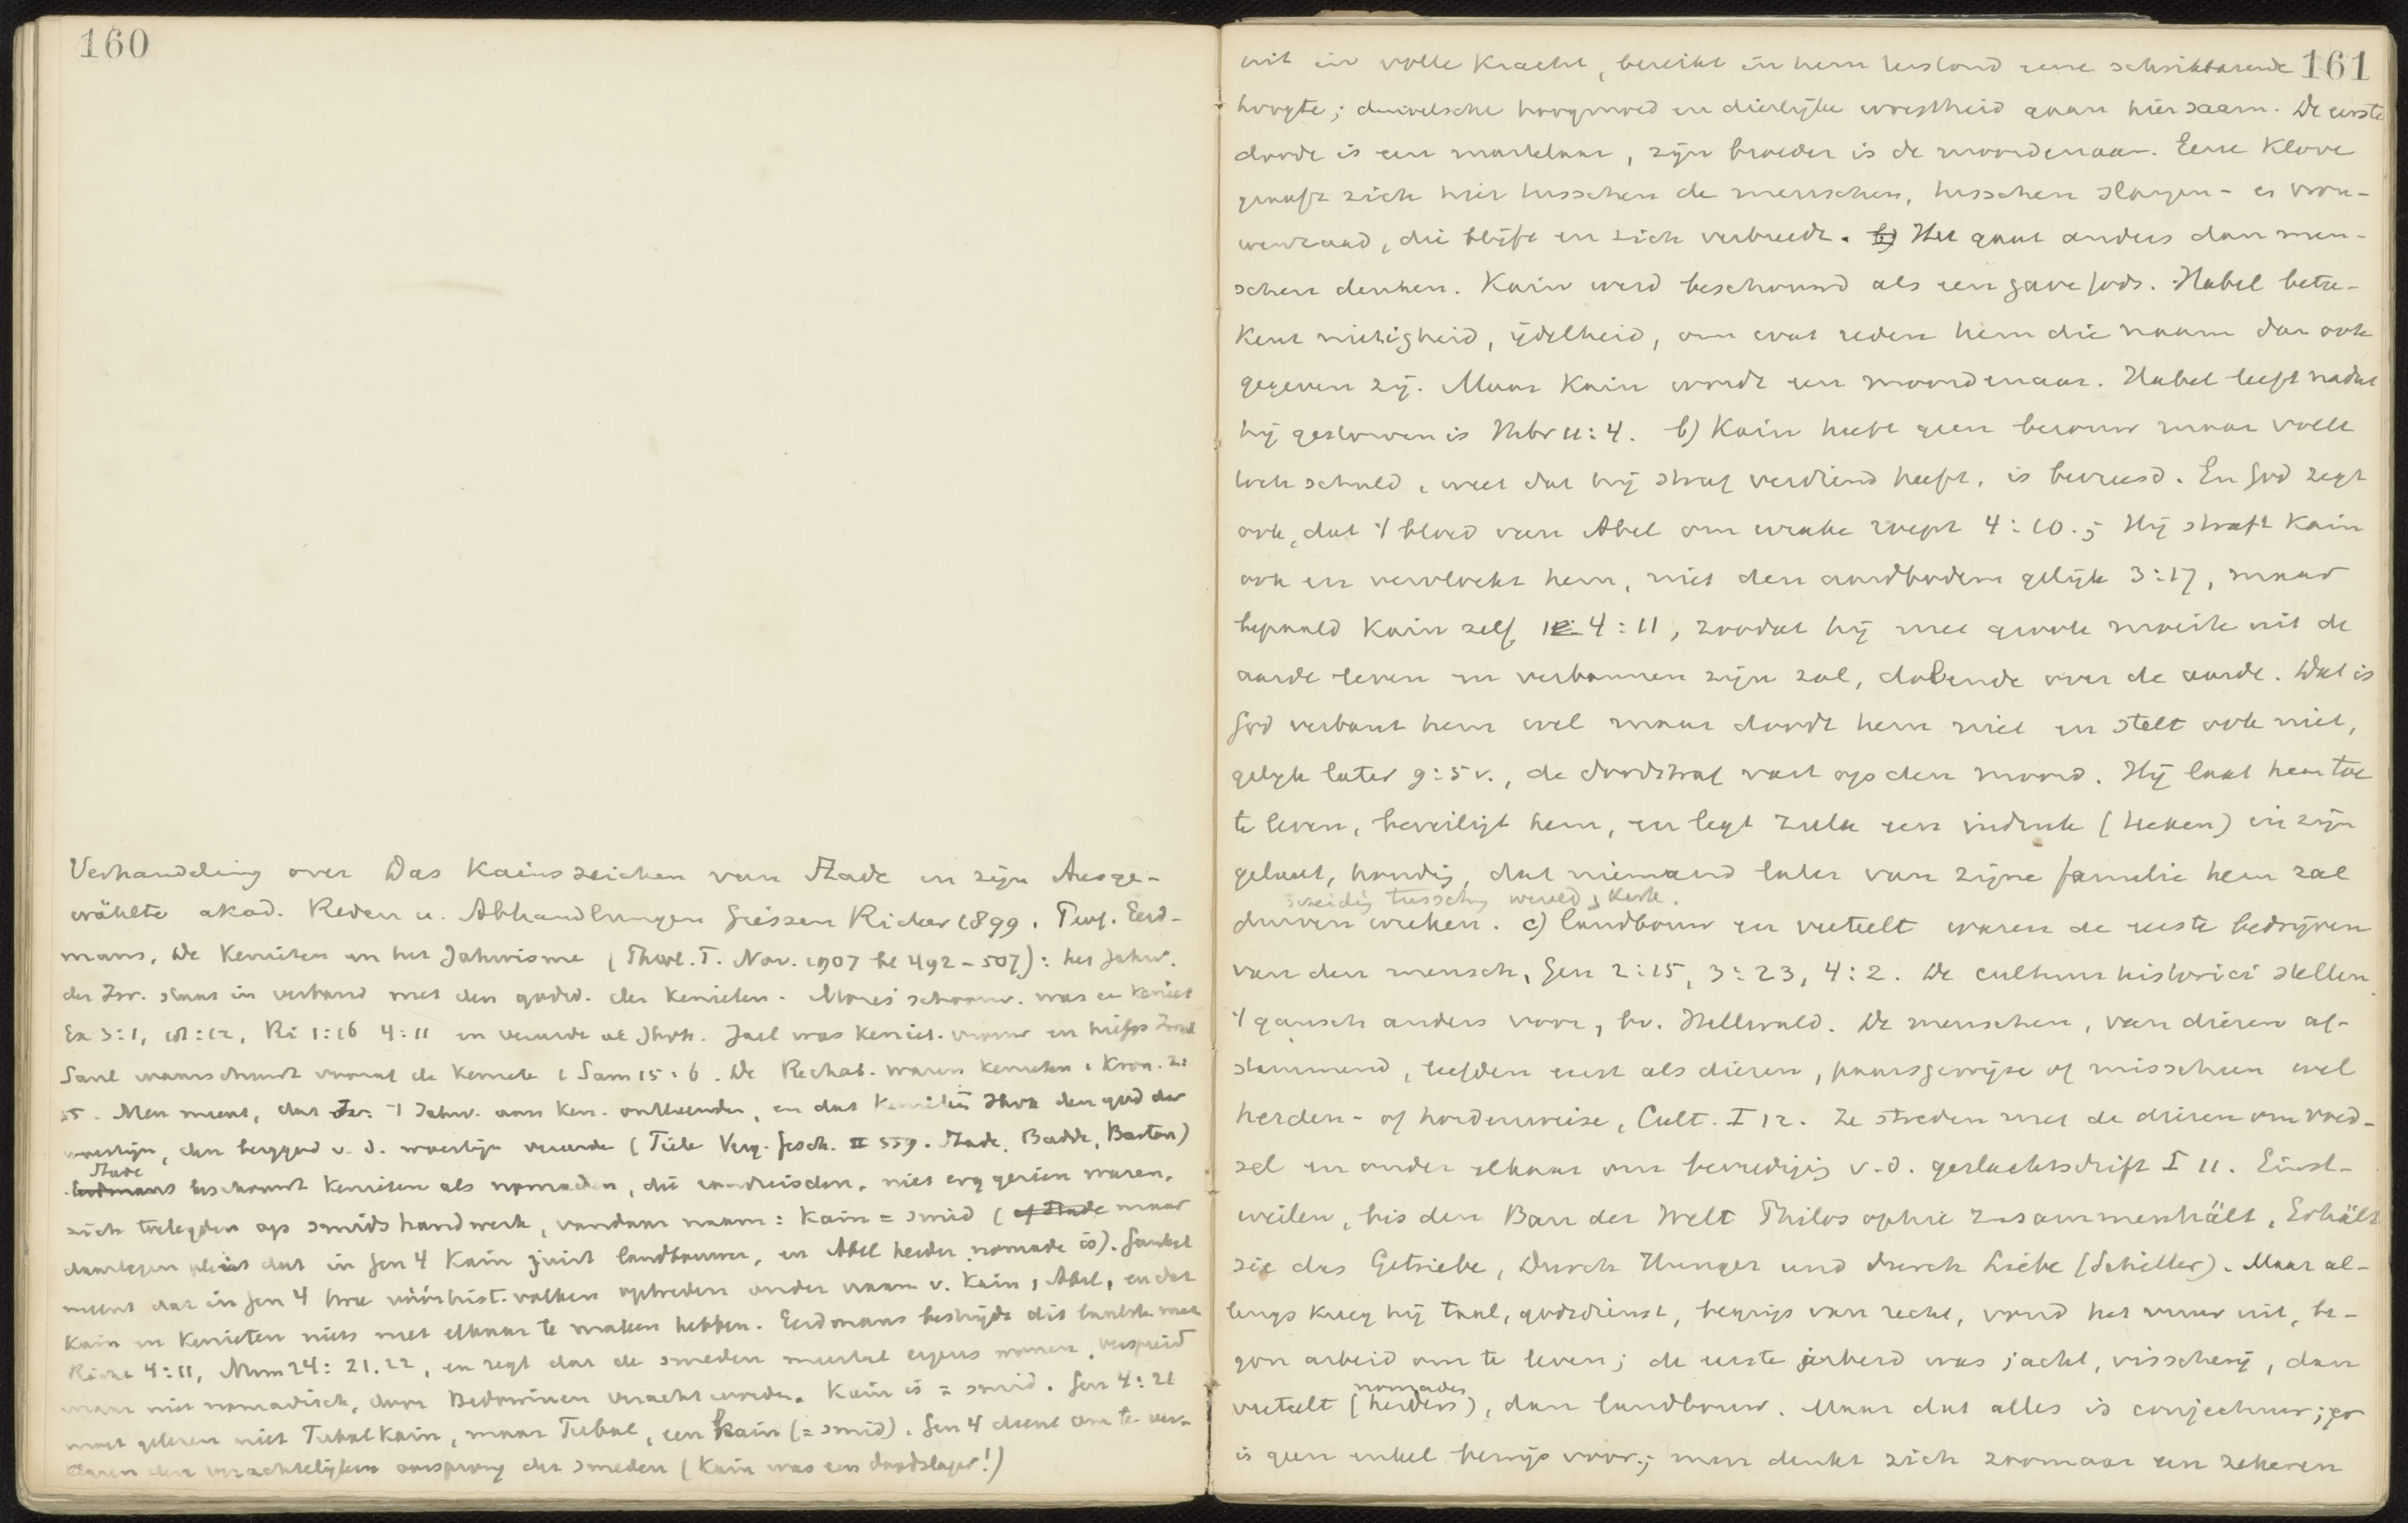 160
Verhandeling over Das Kainszeichen van Stade in zijn Ausge-
wählte akad. Reden u. Abhandlungen Giessen Ricker 1899. Eerd-
mans, De Kenieten en het Jahwisme (Theol. T. Nov. 1907 bl 492-507): het Jahw.
der Isr. staat in verband met den godsd. der Kenieten. Mozes' schoonv. was een Keniet
Ex 3:1, Ri 1:16 4:11 en vereerde al Jhvh. Jael was Keniet. vrouw en
Saul waarschuwt vooraf de Kenieten 1 Sam 15:6. De Rechab. waren Kenieten 1 Kron. 2:
55. Men meent, dat Isr. 't Jahw. aan Ken. ontleende, en dat Jhvh den god der
woestijn, den berggod v. d. woestijn vereerde (Tiele Verg. Gesch. II 559. Stade, Budde, Barton)
Stade
Eerdmans beschouwt Kenieten als nomaden, die niet erg gezien waren,
zich toelegden op smids handwerk, vandaar naam: Kain = smid (of Stade maar
daartegen pleit dat in Gen 4 Kain juist landbouwer, en Abel herder nomade is). Gunkel
meent dat in Gen 4 twee vóórhist. volken optreden onder naam v. Kain, Abel, en dat
Kain en Kenieten niets met elkaar te maken hebben. Eerdmans bestrijdt dit laatste met
Richt 4:11, Num 24:21.22, en zegt dat de smeden meestal ergens wonen, verspreid
maar niet nomadisch, door Bedowinen veracht worden. Kain is = smid. Gen 4:21
moet gelezen niet Tubal Kain, maar Tubal, een Kain (= smid). Gen 4 dient om te ver-
klaren den verachtelijken oorsprong der smeden (Kain was een doodslager!)
161
uit in volle kracht, bereikt in hem terstond eene schrikbarende
hoogte; duivelsche hoogmoed en dierlijke woestheid gaan hier saam. De eerste
doode is een martelaar, zijn broeder is de moordenaar. Eene klove
graaft zich hier tusschen de menschen, tusschen slangen- en vrou-
wenzaad, die blijft en zich verbreedt. b) Het gaat anders dan men-
schen denken. Kain werd beschouwd als een gave Gods. Habel betee-
kent nietigheid, ijdelheid, om wat reden hem die naam dan ook
gegeven zij. Maar Kain wordt een moordenaar. Habel leeft nadat
hij gestorven is Hebr 11:4. b) Kain heeft geen berouw maar voelt
toch schuld, weet dat hij straf verdiend heeft, is bevreesd. En God zegt
ook, dat 't bloed van Abel om wrake roept 4:10.; Hij straft Kain
ook en vervloekt hem, niet den aardbodem gelijk 3:17, maar
bepaald Kain zelf, 4:11, zoodat hij met groote moeite uit de
aarde leven en verbannen zijn zal, dolende over de aarde. Dat is
God verbant hem wel maar doodt hem niet en stelt ook niet,
gelijk later 9:5v., de doodstraf vast op den moord. Hij laat hem toe
te leven, beveiligt hem, en legt zulk een indruk (teeken) in zijn
gelaat, houding, dat niemand later van zijne familie hem zal
scheidg tusschen wereld & kerk.
durven wreken. c) landbouw en veeteelt waren de eerste bedrijven
van den mensch, Gen 2:15, 3:23, 4:2. De cultuurhistorici stellen
't gansch anders voor, bv. Hellwald. De menschen, van dieren af-
stammend, leefden eerst als dieren, paarsgewijze of misschien wel
herden- of hordenweise, Cult. I 12. Ze streden met de dieren om voed-
sel en onder elkaar om bevrediging v. d. geslachtsdrift I 11. Einst-
weilen, bis den Bau der Welt Philosophie zusammenhält, Erhält
sie das Getriebe, Durch Hunger und durch Liebe (Schiller). Maar al-
lengs kreeg hij taal, godsdienst, begrip van recht, vond het vuur uit, be-
gon arbeid om te leven; de eerste arbeid was jacht, visscherij, dan
nomades
veeteelt (herders), dan landbouw. Maar dat alles is conjectuur; er
is geen enkel bewijs voor; men denkt zich zoomaar een zekeren